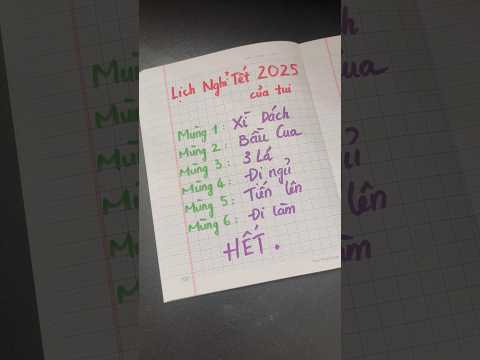 Lịch Nghỉ Tết 2025
của tui
Mùng 1 : Xì Dách
Mùng 2 : Bầu Cua
Mùng 3 : 3 Lá
Mùng 4 : Đi ngủ
Mùng 5 : Tiến lên
Mùng 6 : Đi làm
HẾT .